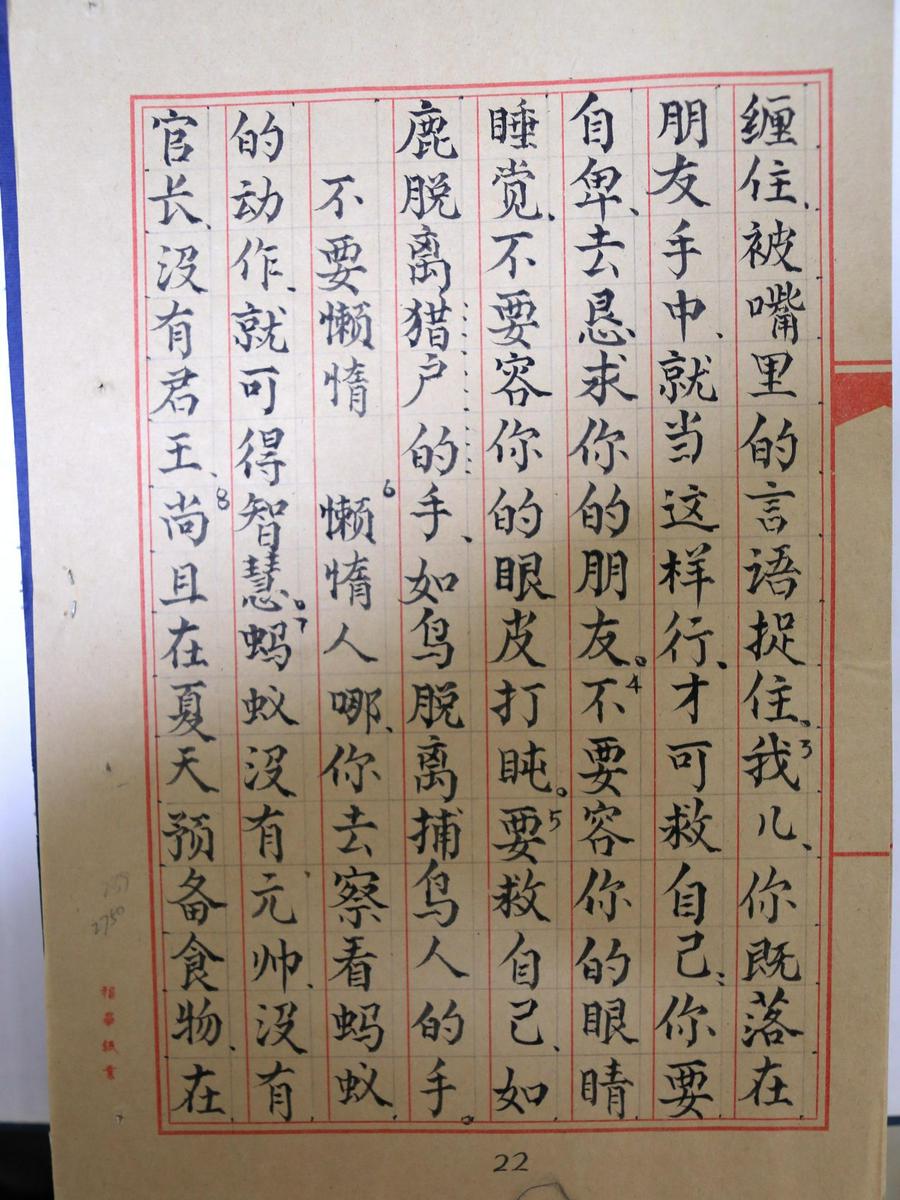 缠住、被嘴里的言语捉住。3我儿、你既落在
朋友手中、就当这样行、才可救自己、你要
自卑、去恳求你的朋友。4不要容你的眼睛
睡觉、不要容你的眼皮打盹。5要救自己、如
鹿脱离猎户的手、如鸟脱离捕鸟人的手。
不要懒惰 6懒惰人哪、你去察看蚂蚁、
的动作、就可得智慧。7蚂蚁没有元帅、没有
官长、没有君王、8尚且在夏天预备食物、在
22
2750